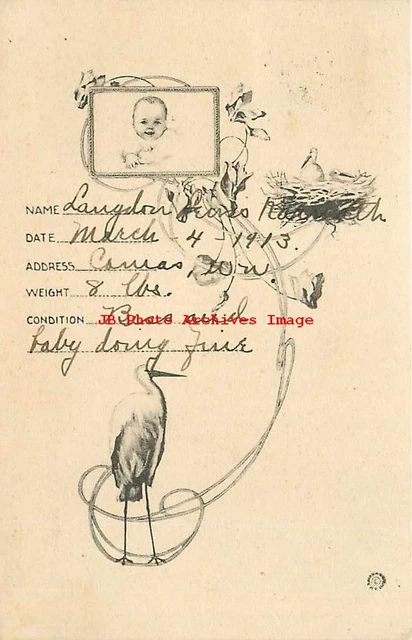 NAME Langdon
DATE March - 4 - 1913.
ADDRESS Camas, Wn.
WEIGHT 8 lbs.
CONDITION and
JB Photo Archives Image
baby doing fine